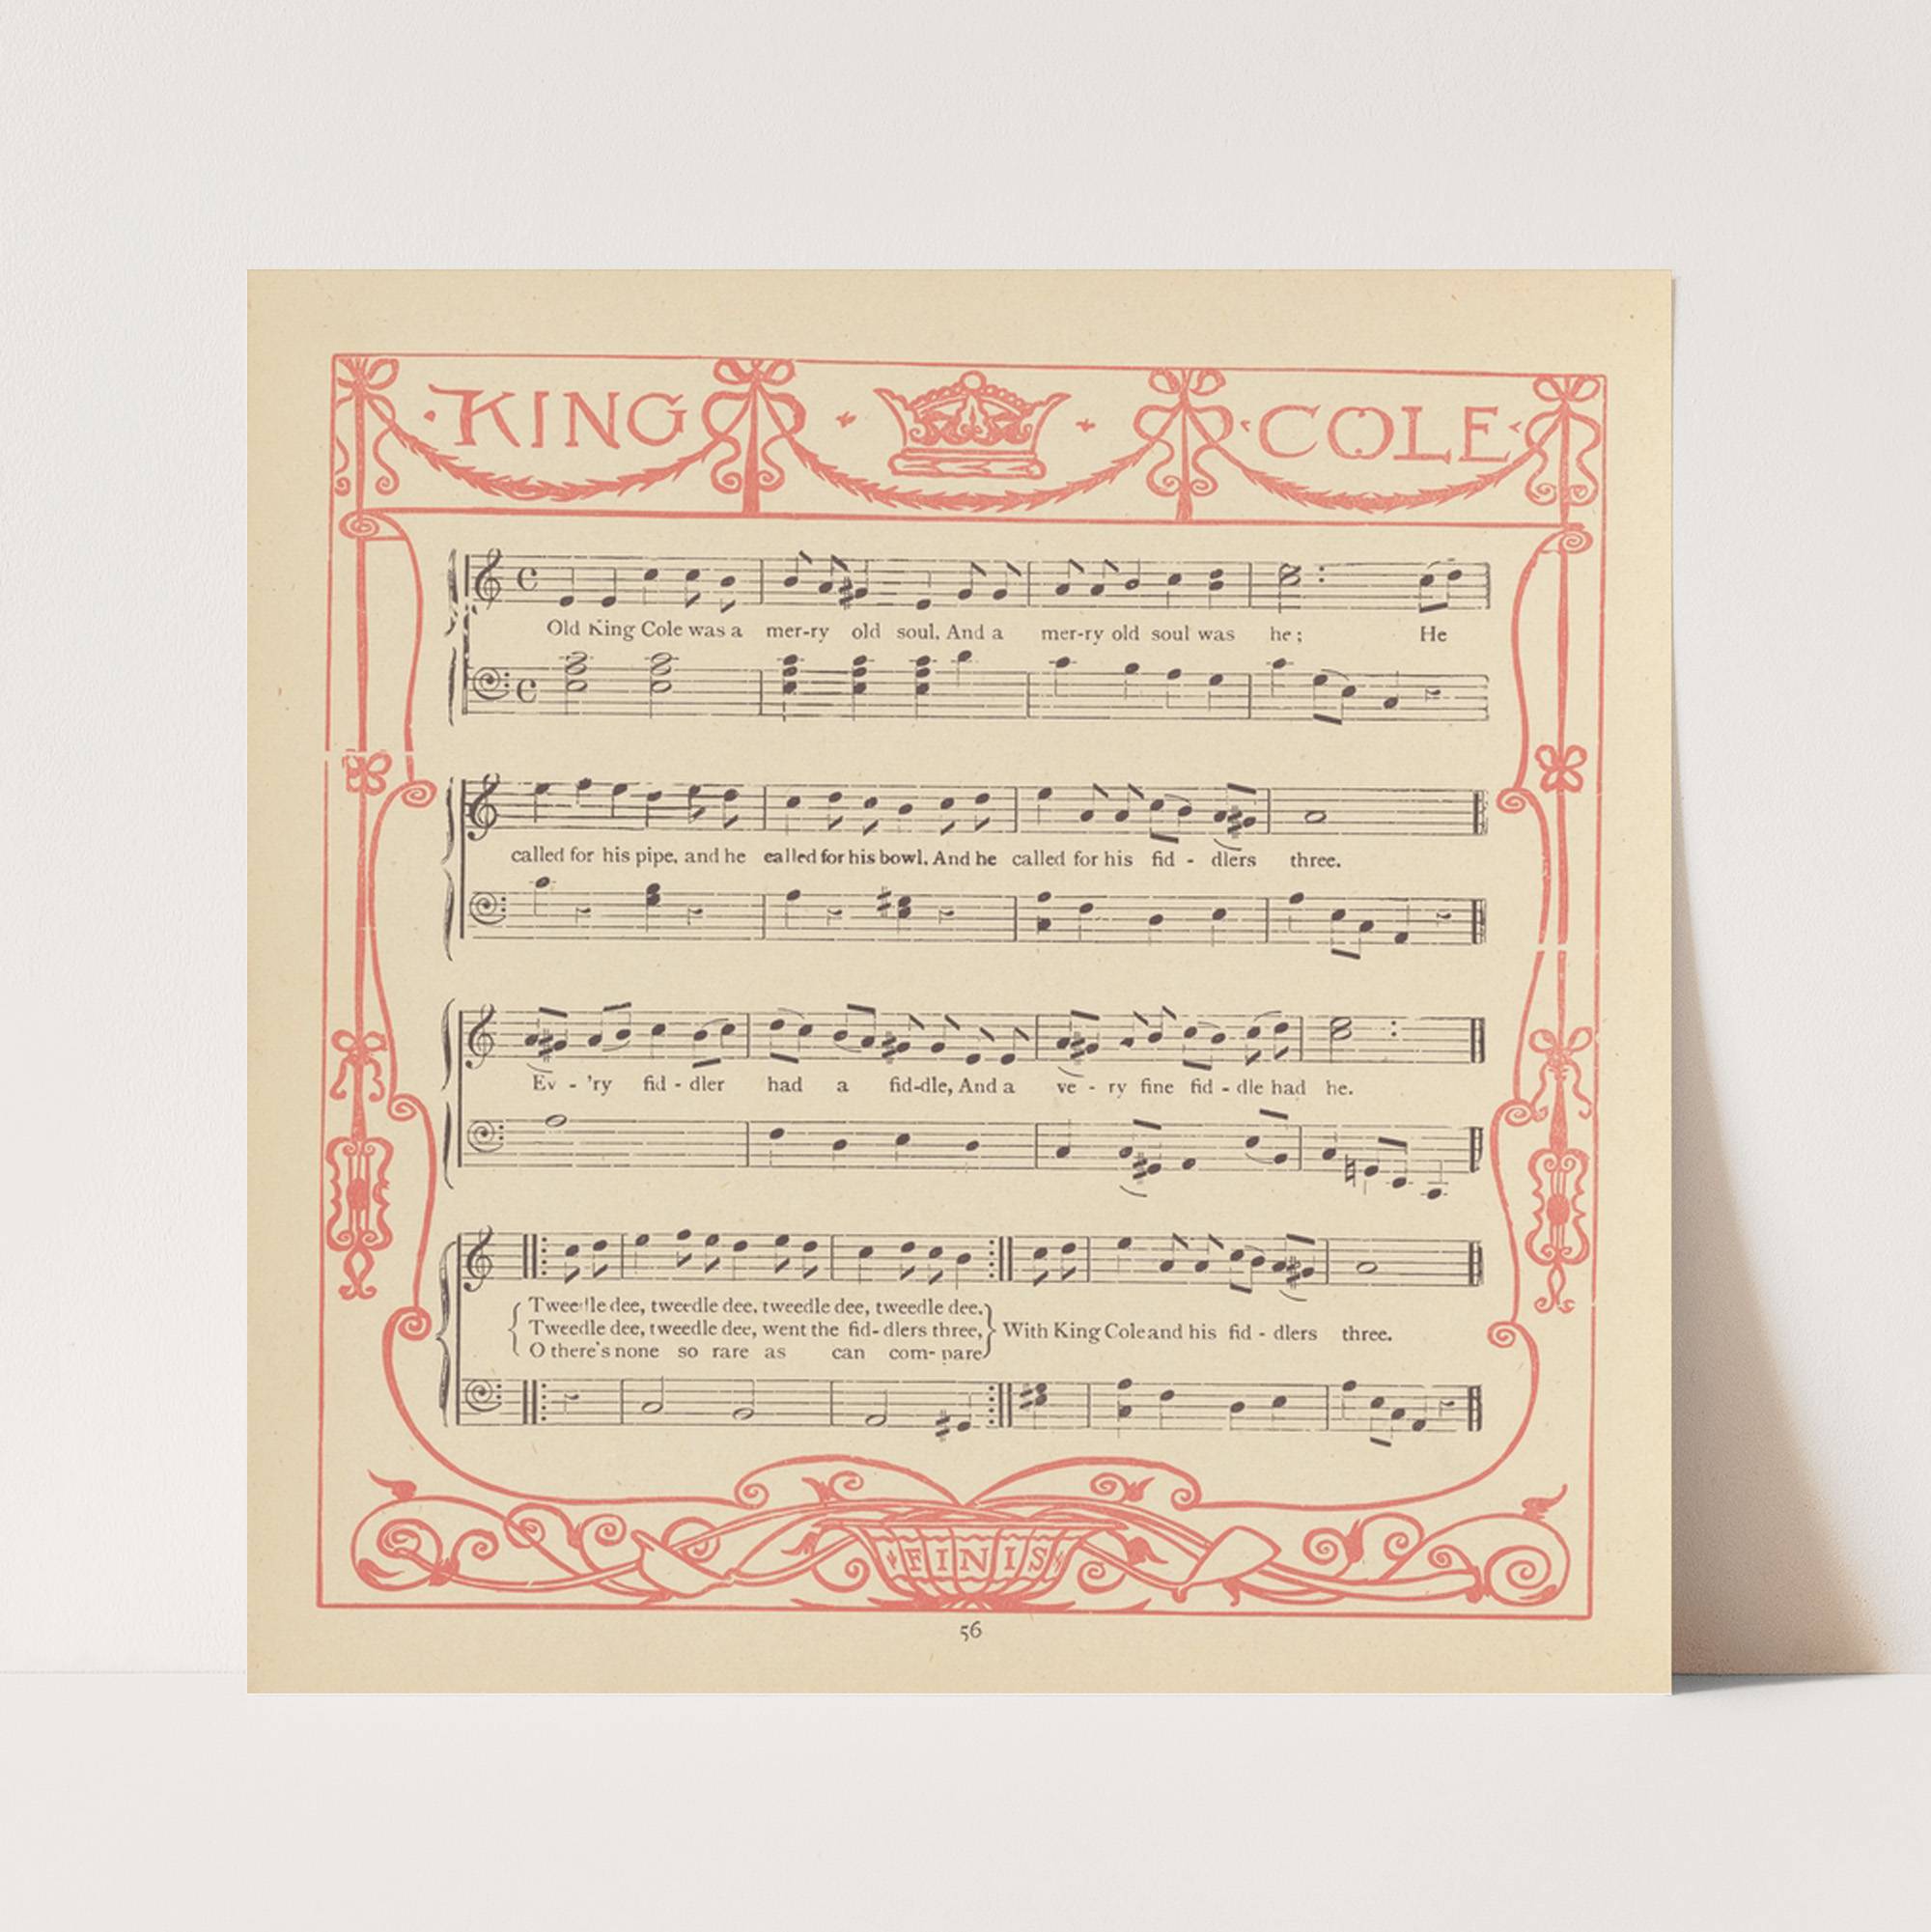 ·KING· ·COLE·
Old King Cole was a mer-ry old soul. And a mer-ry old soul was he; He
called for his pipe, and he called for his bowl. And he called for his fid - dlers three.
Ev - 'ry fid - dler had a fid-dle, And a ve - ry fine fid - dle had he.
Tweedle dee, tweedle dee, tweedle dee, tweedle dee.
Tweedle dee, tweedle dee, went the fid-dlers three,
O there's none so rare as can com-pare
With King Cole and his fid - dlers three.
FINIS
56